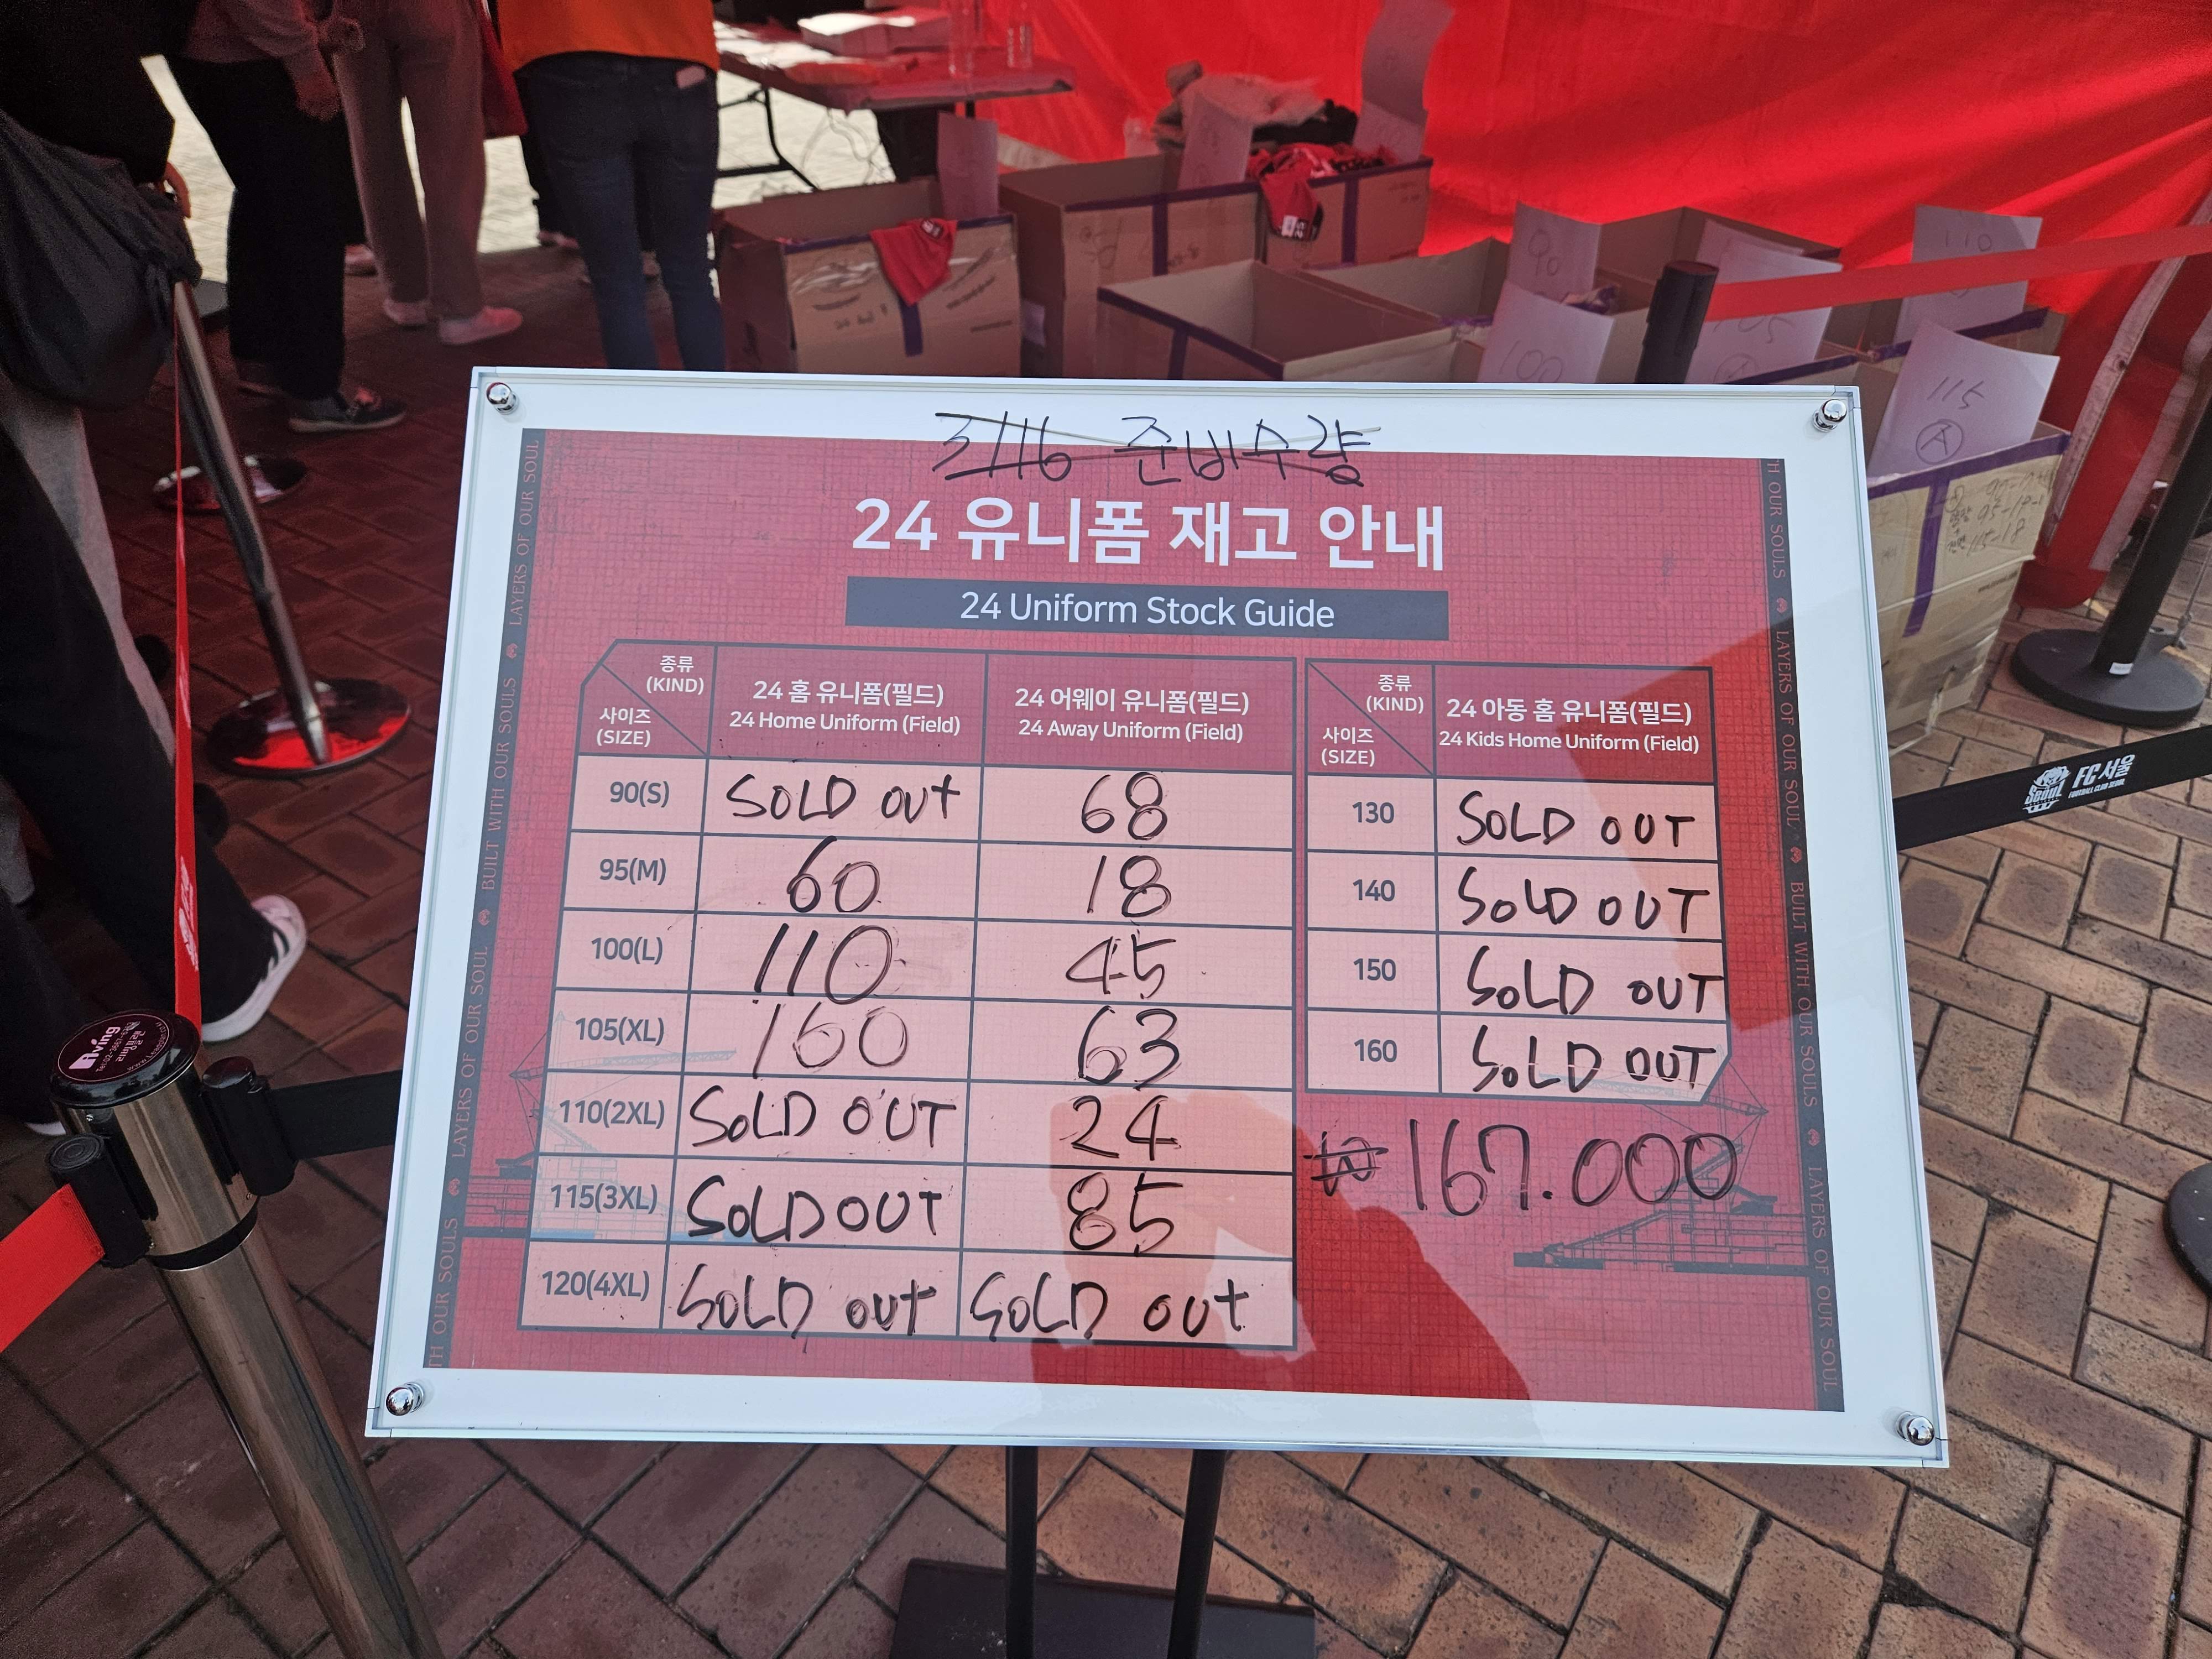 3/16 준비수량
24 유니폼 재고 안내
24 Uniform Stock Guide
종류
(KIND)
사이즈
(SIZE)
24 홈 유니폼(필드)
24 Home Uniform (Field)
24 어웨이 유니폼(필드)
24 Away Uniform (Field)
90(S) SOLD OUT 68
95(M) 60 18
100(L) 110 45
105(XL) 160 63
110(2XL) SOLD OUT 24
115(3XL) SOLD OUT 85
120(4XL) SOLD OUT SOLD OUT
종류
(KIND)
사이즈
(SIZE)
24 아동 홈 유니폼(필드)
24 Kids Home Uniform (Field)
130 SOLD OUT
140 SOLD OUT
150 SOLD OUT
160 SOLD OUT
₩167.000
TH OUR SOULS LAYERS OF OUR SOUL BUILT WITH OUR SOULS LAYERS OF OUR SOUL
H OUR SOULS LAYERS OF OUR SOUL BUILT WITH OUR SOULS LAYERS OF OUR SOUL
90
100
110
115
A
Seoul
FC서울
FOOTBALL CLUB SEOUL
Living